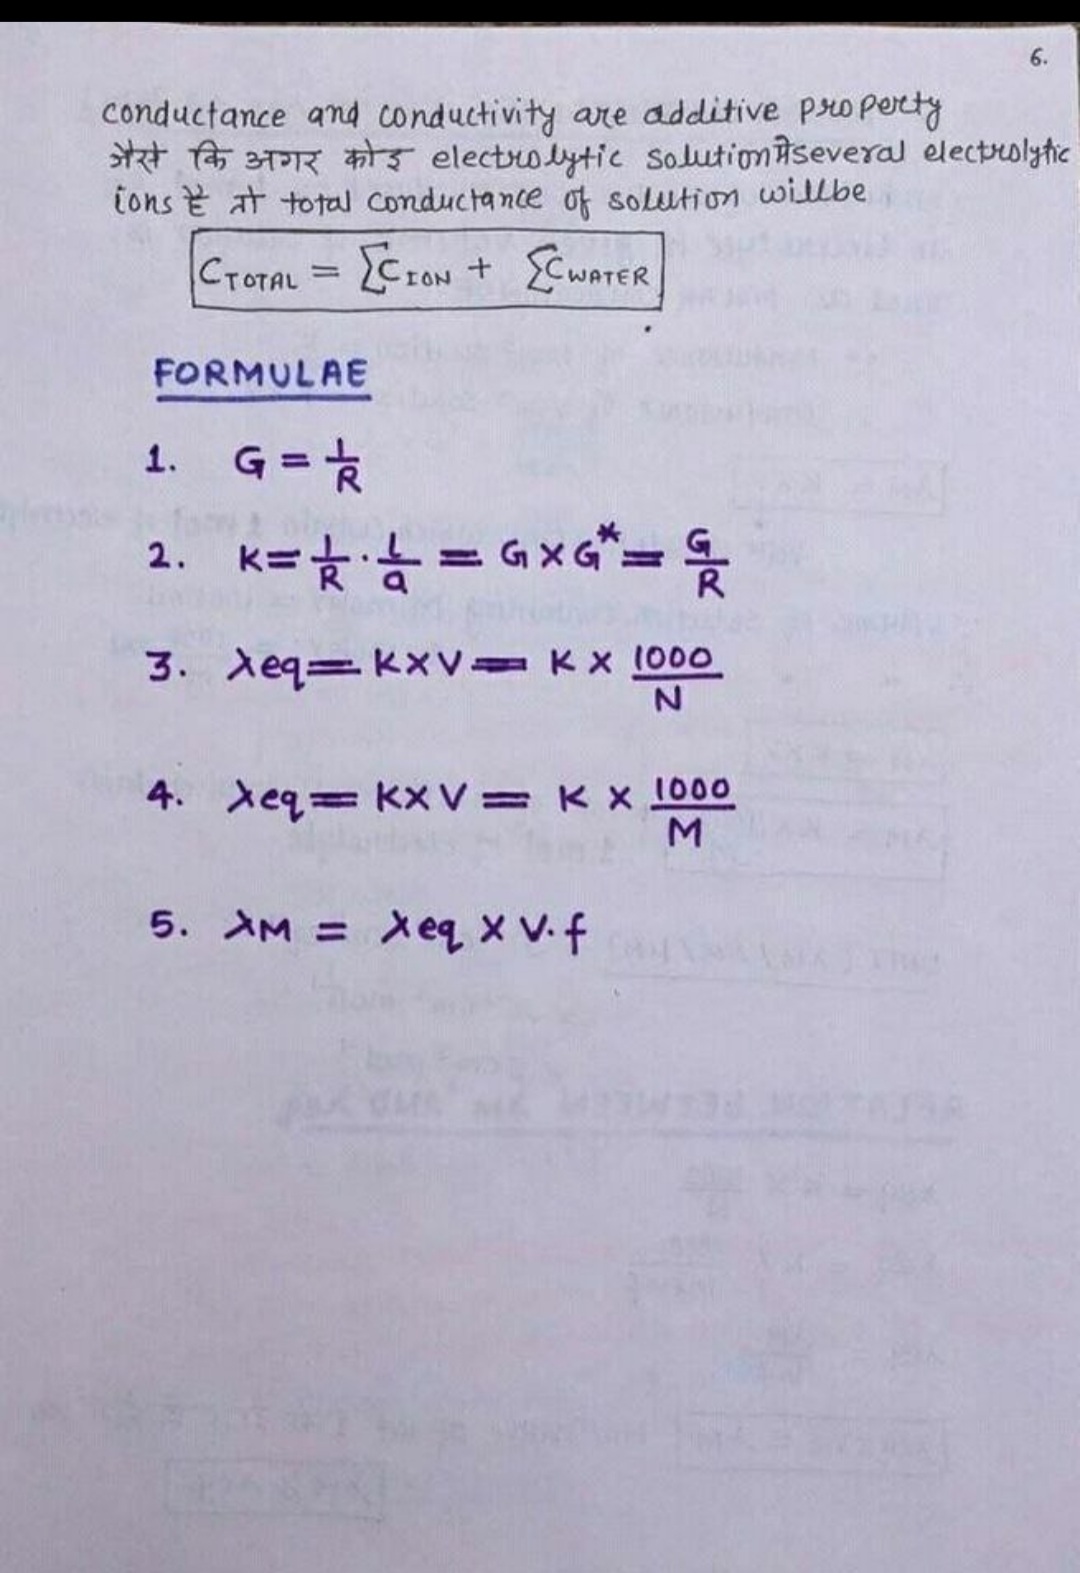 6.
conductance and conductivity are additive property
जैसे कि अगर कोइ electrolytic solution में several electrolytic
ions है तो total conductance of solution will be
C TOTAL = ΣC ION + ΣC WATER
FORMULAE
1. G = 1/R
2. K = 1/R · l/a = G × G* = G/R
3. λeq = K × V = K × 1000/N
4. λeq = K × V = K × 1000/M
5. λM = λeq × V.f